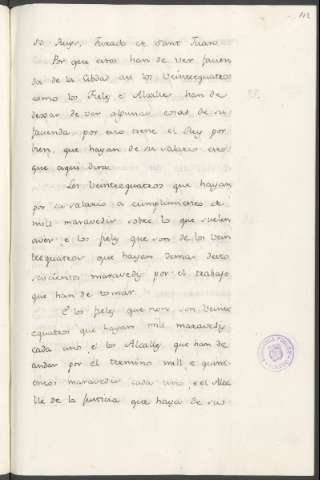 112
Ruyz, Jurado de Sant Juan.
Por que estos han de ver facien
da de la Cibdat asi los Veintequatros
como los Fieles e Alcalles han de
dexar de ver algunas cosas de su
facienda, por esto tiene el Rey por
bien, que hayan de su salario esto
que aqui dira.
Los Veintequatros que hayan
por su salario a cumplimiento de
mill maravedis sobre lo que suelen
aver e los fieles que son de los Vein
tequatros que hayan demas desto
seiscientos maravedis por el trabajo
que han de tomar.
E los fieles que non son Veinte
equatros que hayan mill maravedis
cada uno, e los Alcalles que han de
andar por el termino mill e quini
entos maravedis cada uno, e el Alca
lle de la Justicia que haya de su